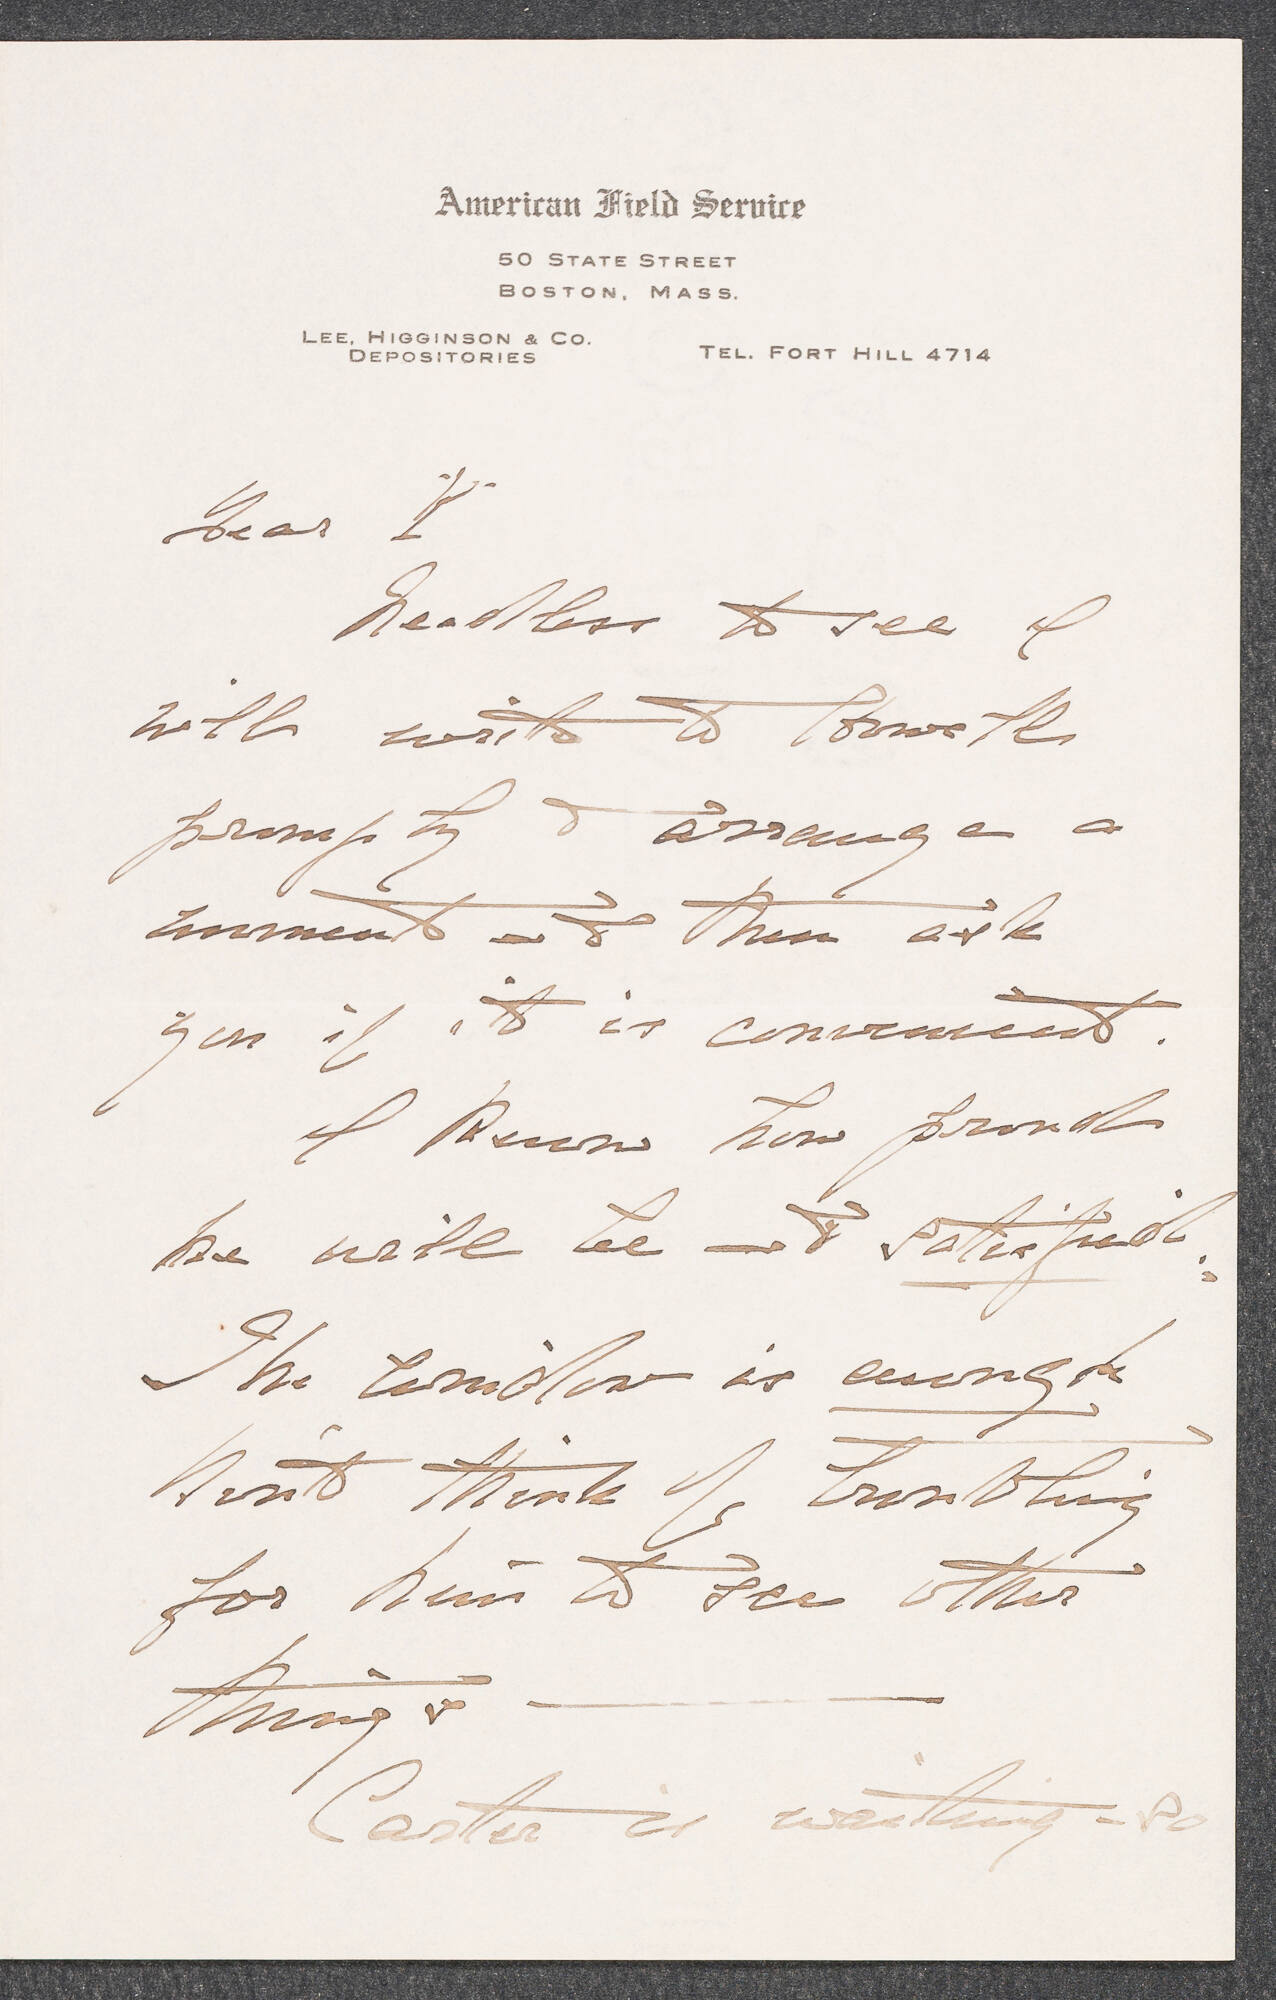 American Field Service
50 State Street
Boston, Mass.
Lee, Higginson & Co.
Depositories
Tel. Fort Hill 4714
Dear Y
Needless to see I
will write to
promptly & arrange a
moment and then ask
you if it is convenient.
I know how proud
he will be and satisfied.
The window is enough
Don't think of troubling
for him to see other
things —
Carter is waiting - so